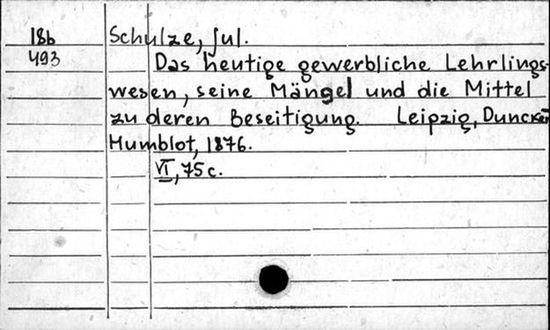 18b
493
Schulze, Jul.
Das heutige gewerbliche Lehrlings-
wesen, seine Mängel und die Mittel
zu deren Beseitigung. Leipzig, Duncker
Humblot, 1876.
VI, 75 c.